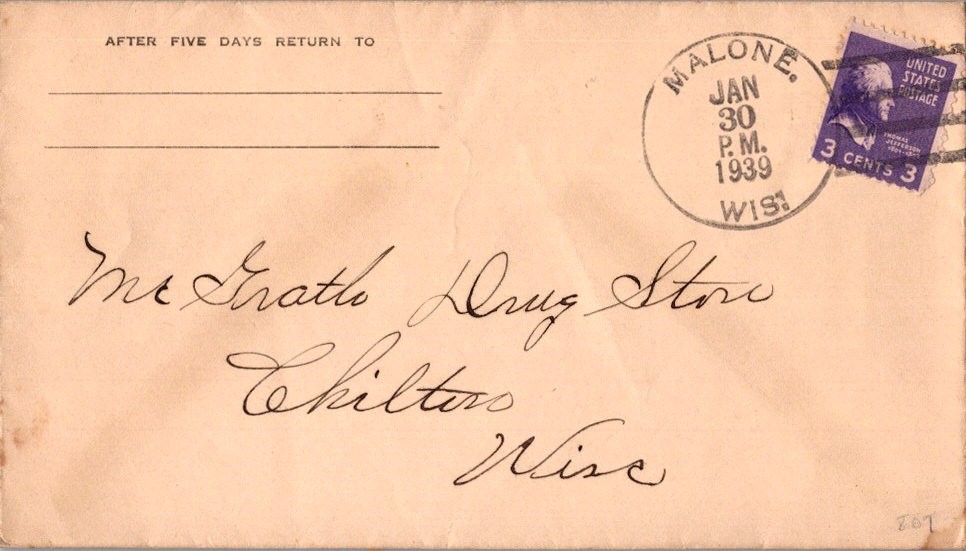 AFTER FIVE DAYS RETURN TO
MALONE.
JAN
30
P.M.
1939
WIS.
UNITED
STATES
POSTAGE
THOMAS
JEFFERSON
1801-1809
3 CENTS 3
Mc Grath Drug Store
Chilton
Wisc
807